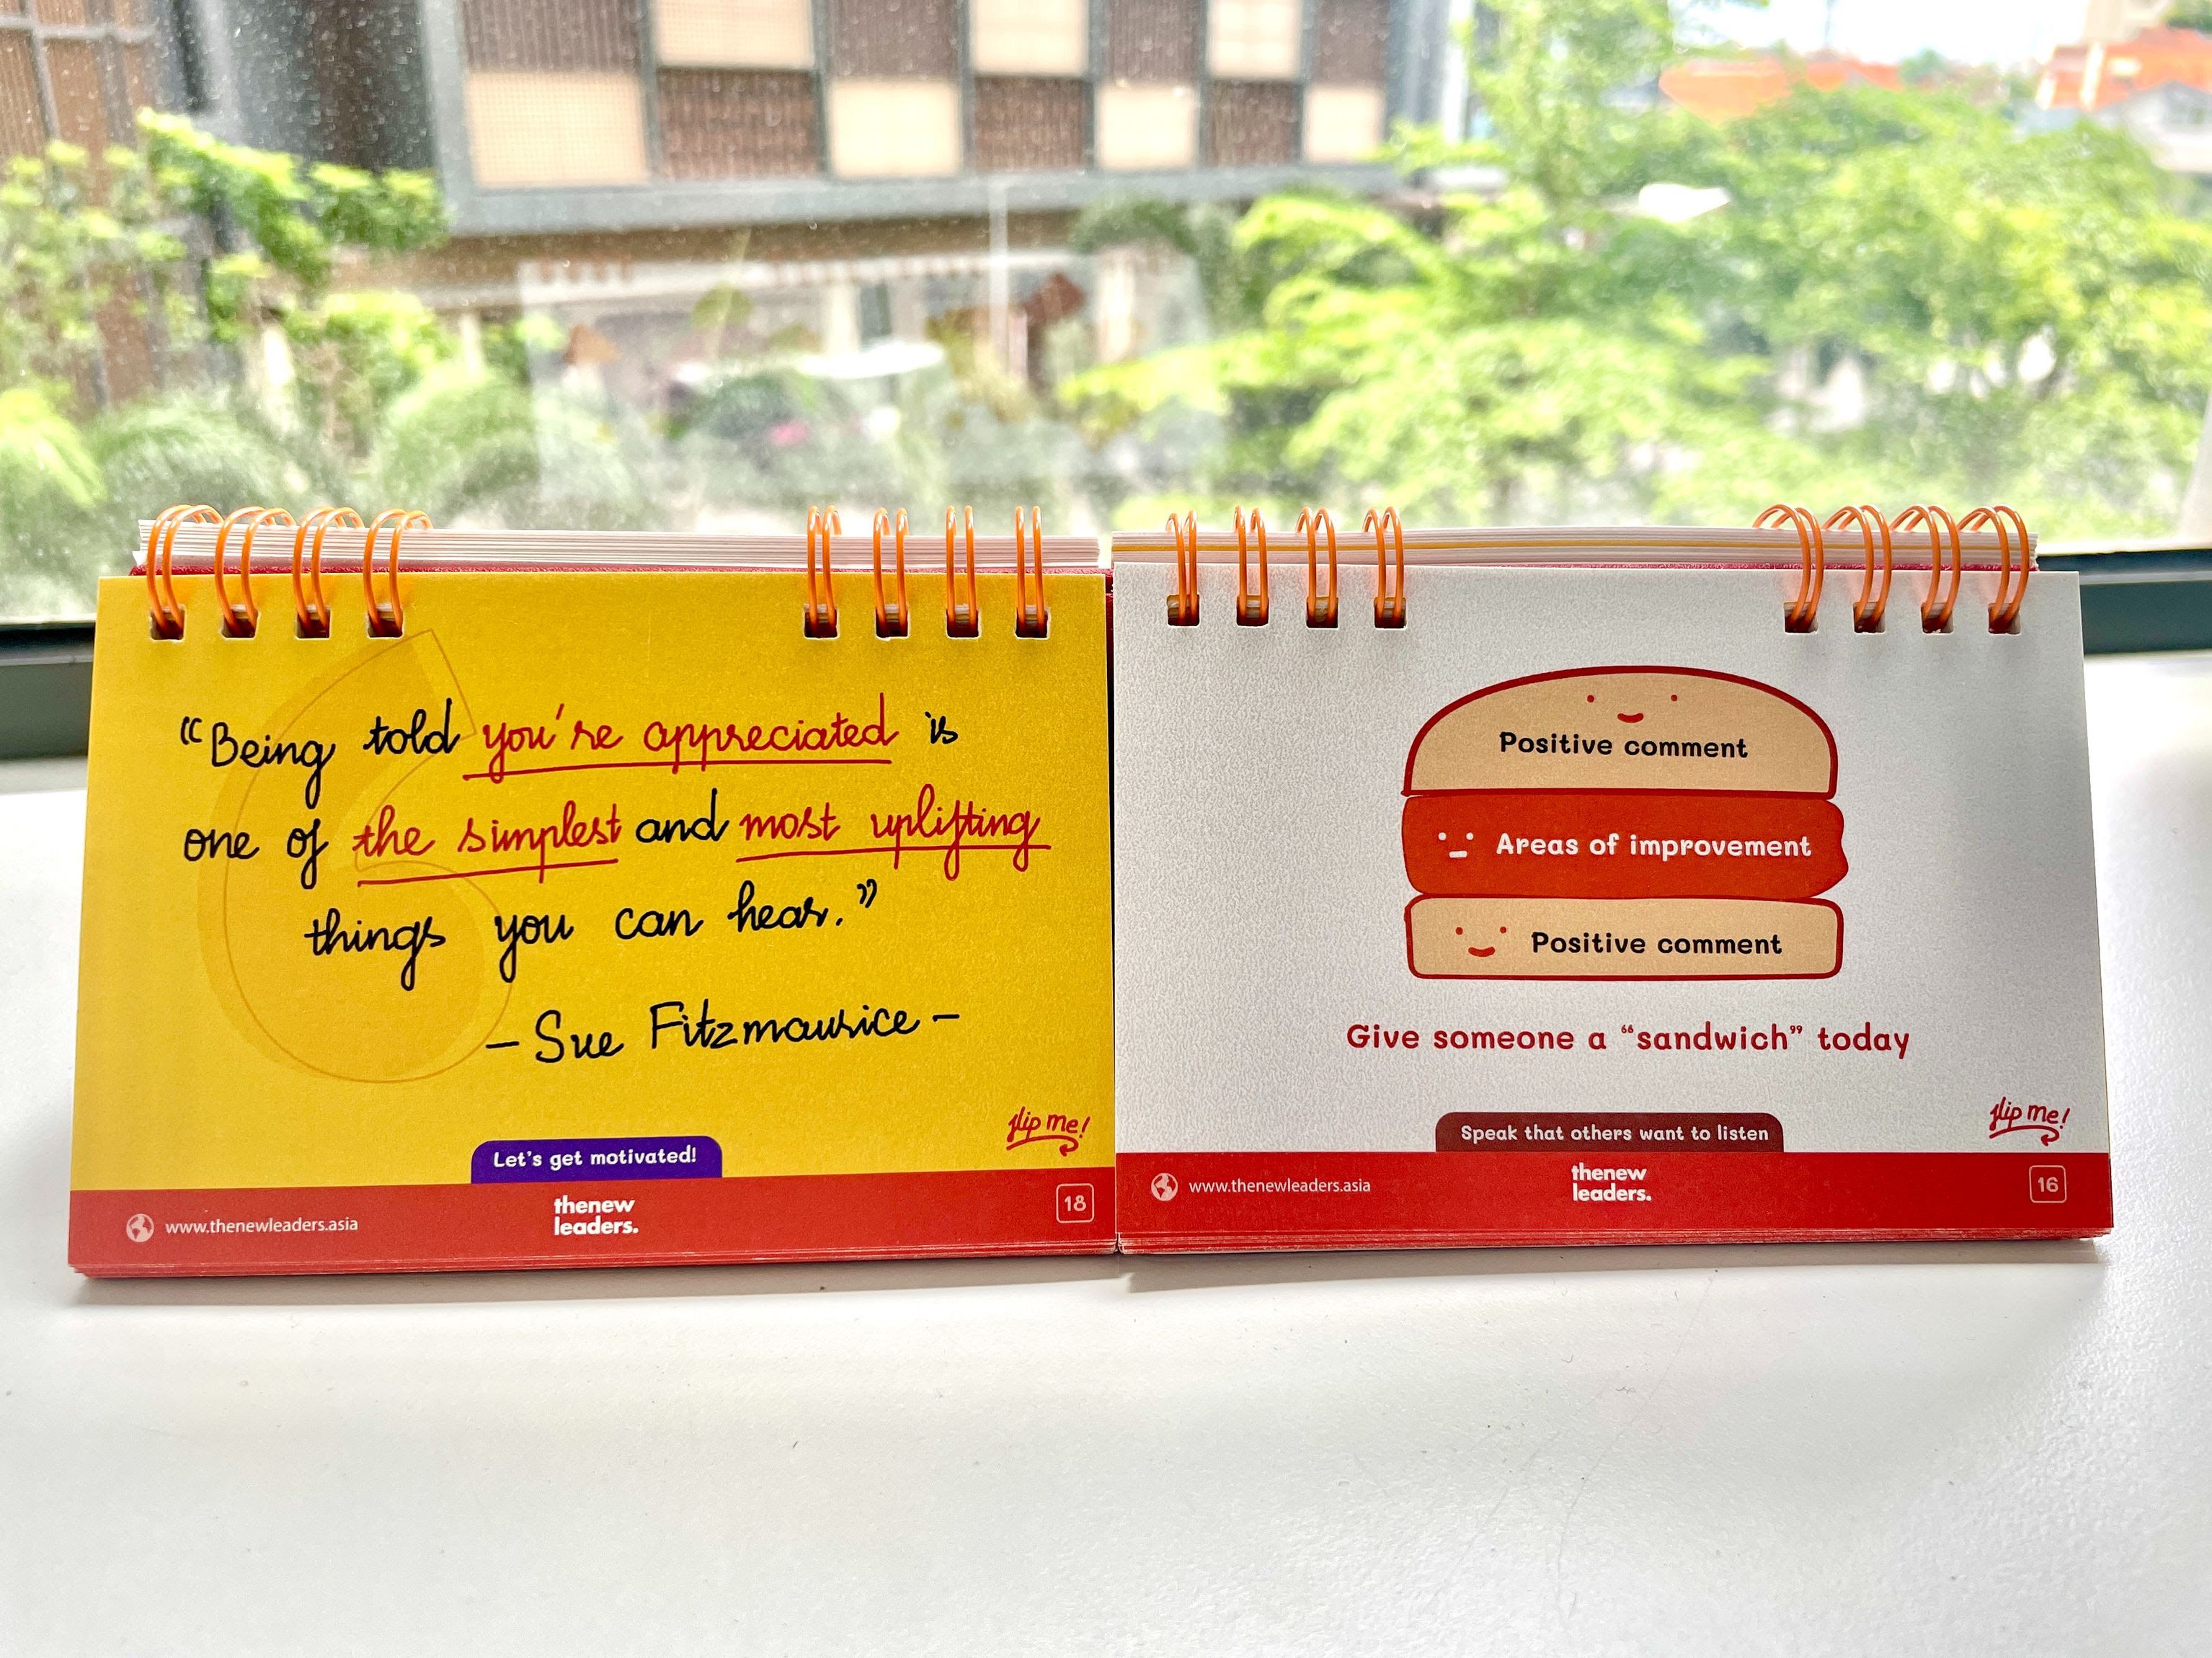 “Being told you're appreciated is
one of the simplest and most uplifting
things you can hear.”
– Sue Fitzmaurice –
flip me!
Let's get motivated!
www.thenewleaders.asia
thenew
leaders.
18
Positive comment
Areas of improvement
Positive comment
Give someone a “sandwich” today
flip me!
Speak that others want to listen
www.thenewleaders.asia
thenew
leaders.
16